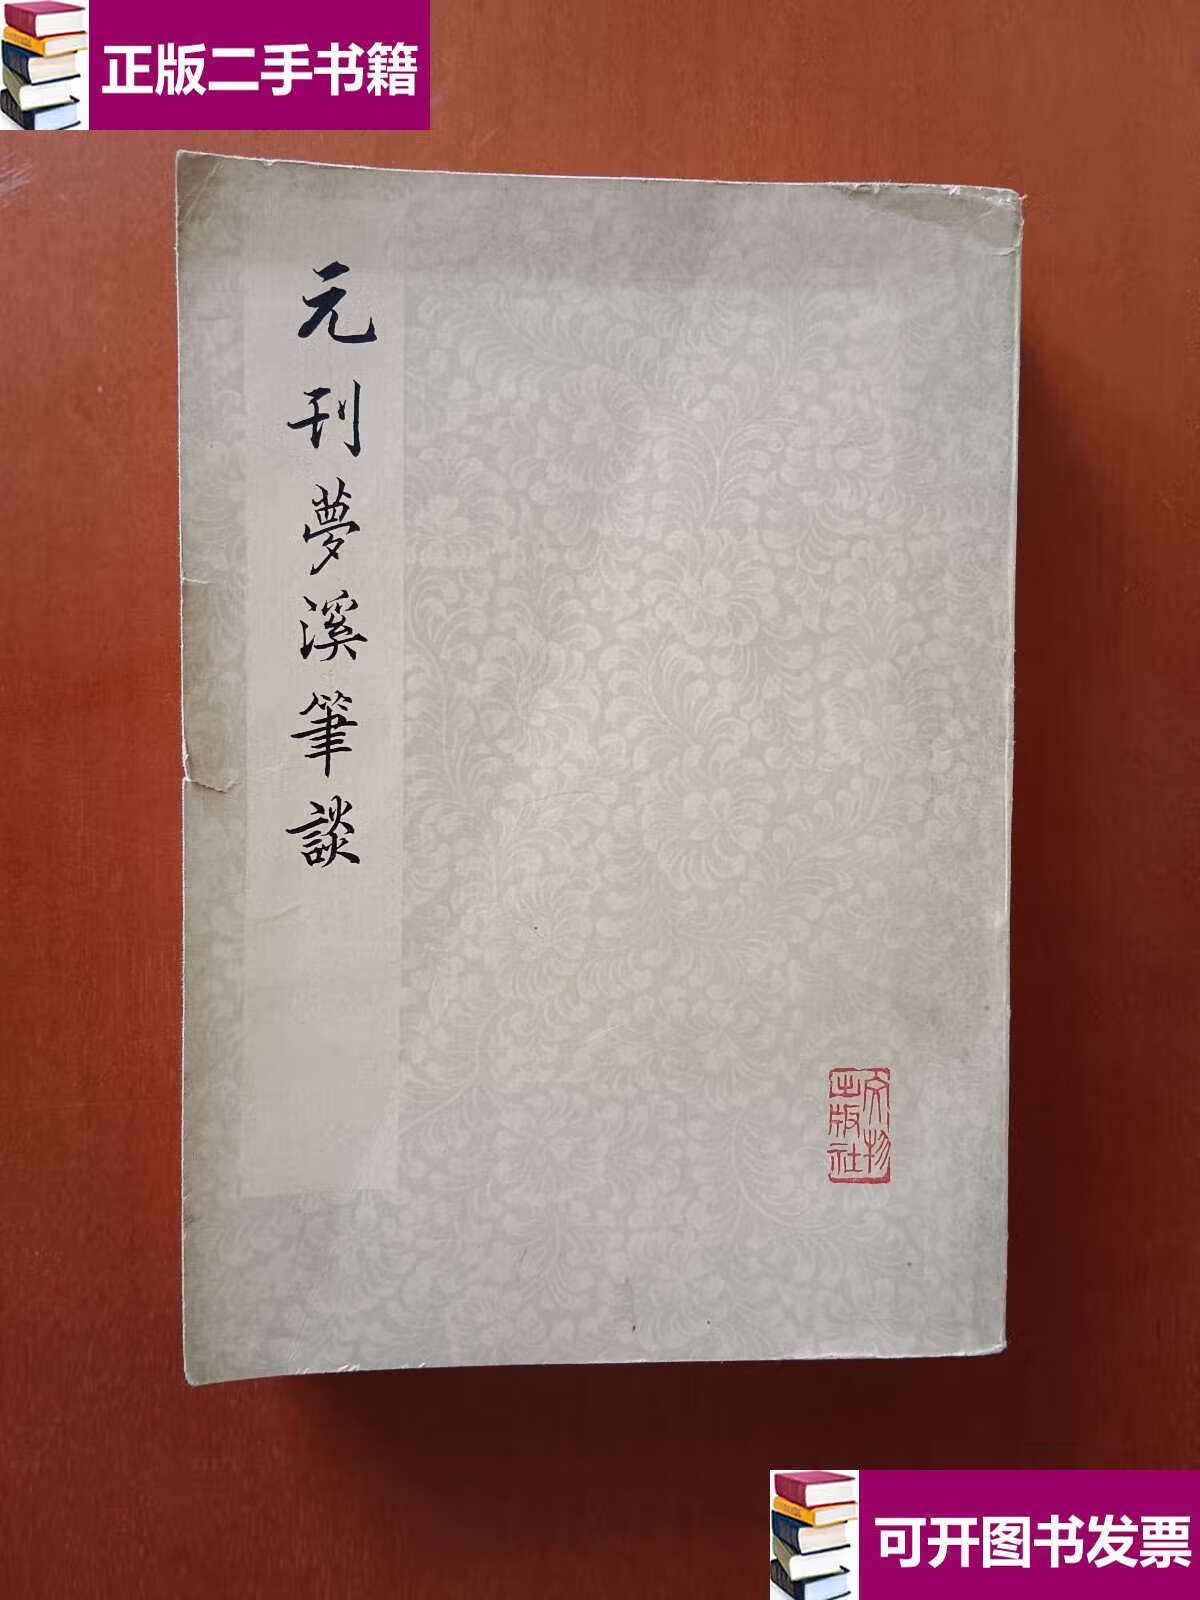 正版二手书籍
元刊夢溪筆談
文物
出版社
可开图书发票